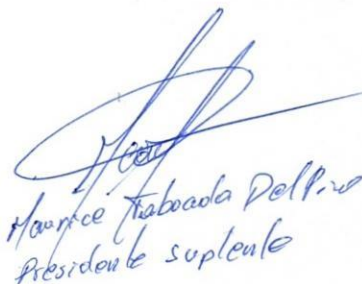 Maurice Traboada DelPino
Presidente suplente